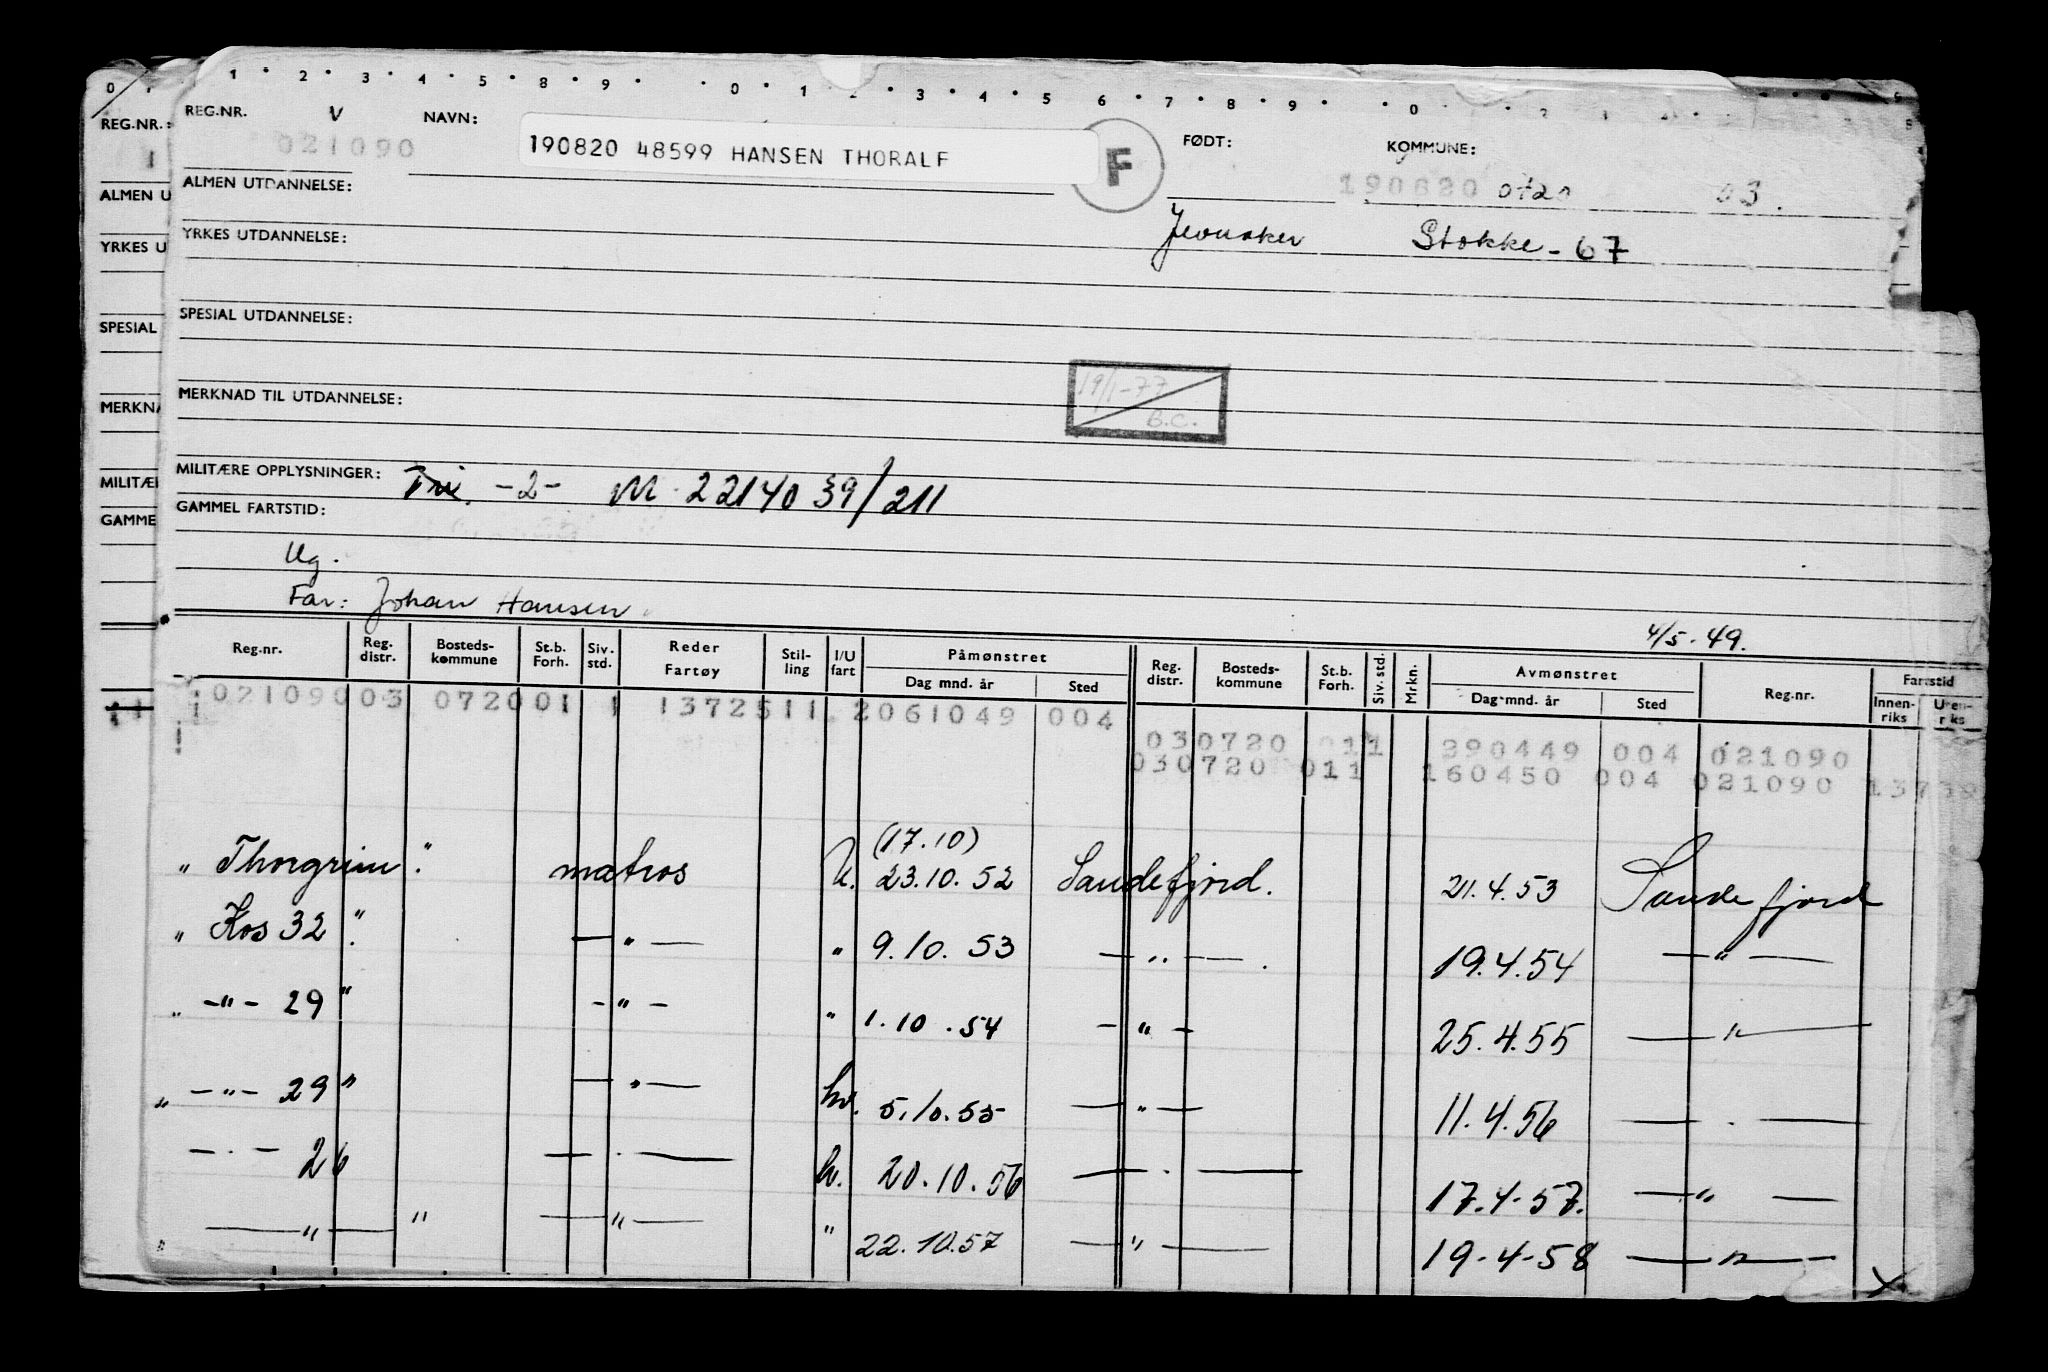 REG.NR. V NAVN: FØDT: KOMMUNE:
021090 190820 48599 HANSEN THORALF F 190820 0720 03.
ALMEN UTDANNELSE:
Jevnaker Stokke - 67
YRKES UTDANNELSE:
SPESIAL UTDANNELSE:
19/1-77
B.C.
MERKNAD TIL UTDANNELSE:
MILITÆRE OPPLYSNINGER: -2- M. 22140 39/211
GAMMEL FARTSTID:
Ug.
Far: Johan Hansen
4/5-49.
Reg.nr. Reg. distr. Bosteds-kommune St.b. Forh. Siv. std. Reder Fartøy Stil-ling I/U fart Påmønstret Dag mnd. år Sted Reg. distr. Bosteds-kommune St.b. Forh. Siv. std. Mrkn. Avmønstret Dag mnd. år Sted Reg.nr. Fartstid Innen-riks Uten-riks
021090 03 0720 01 1 1 1372511 2061049 004
030720 011 290449 004 021090
030720 011 160450 004 021090
(17.10)
" Thorgrim " matros U. 23.10.52 Sandefjord. 21.4.53 Sandefjord
" Kos 32 " — " — " 9.10.53 — " — 19.4.54 — " —
" — " — 29 " — " — " 1.10.54 — " — 25.4.55 — " —
" — " — 29 " — " — hv. 5.10.55 — " — 11.4.56 — . —
— . — 26 — . — h. 20.10.56 — . — 17.4.57. — " —
" — " — " — " — " 22.10.57 — " — 19.4.58 — " —
REG.NR.:
ALMEN U
YRKES U
SPESIAL
MERKNA
MILITÆ
GAMME